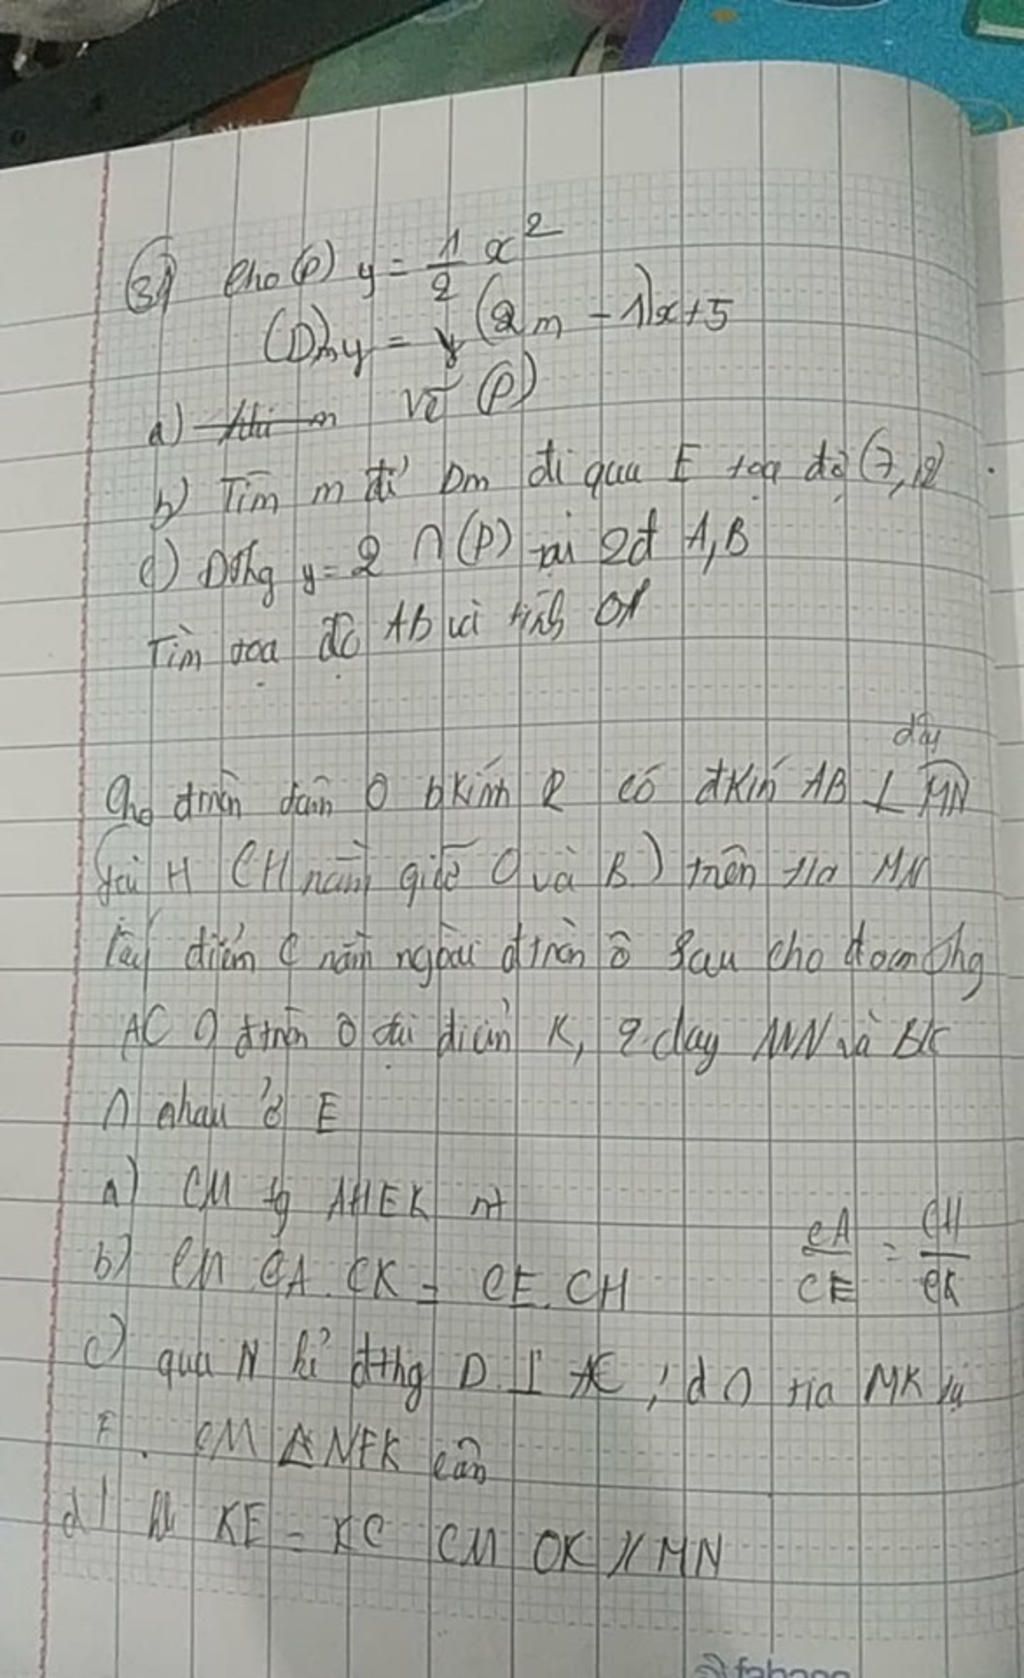 3) Cho (P) y = 1/2 x²
(D)m y = (2m - 1)x + 5
a) vẽ (P)
b) Tìm m để Dm đi qua E tọa độ (7, 12)
c) Dthg y = 2 ∩ (P) tại 2đ A, B
Tìm tọa độ AB và tính OA
dây
Cho đtròn tâm O bkính R có đkín AB ⊥ MN
tại H (H nằm giữa O và B) trên tia MN
lấy điểm C nằm ngoài đtròn O sau cho đoạn thg
AC ∩ đtròn O tại điểm K, 2 dây MN và BK
∩ nhau ở E
a) CM tg AHEK nt
b) CM CA . CK = CE . CH CA/CE = CH/CK
c) qua N kẻ đthg D ⊥ AC, d ∩ tia MK tại
F. CM ΔNFK cân
d) KE = KC CM OK // MN